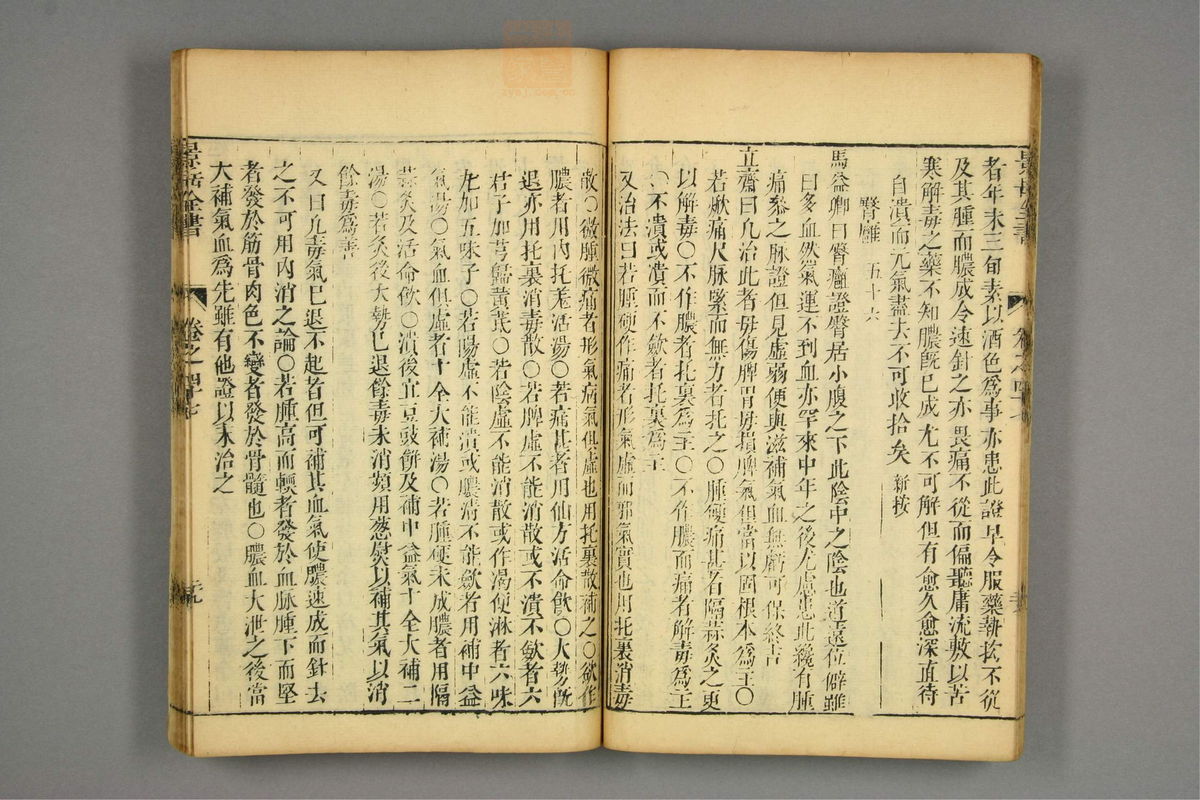 者年未三旬素以酒色為事亦患此證早令服藥執拗不從
及其腫而膿成令速針之亦畏痛不從而偏聽庸流敷以苦
寒解毒之藥不知膿既已成尤不可解但有愈久愈深直待
自潰而元氣盡去不可收拾矣 新按
臀癰 五十六
馬益卿曰臀癰證臀居小腹之下此陰中之陰也道遠位僻雖
曰多血然氣運不到血亦罕來中年之後尤慮患此纔有腫
痛參之脉證但見虛弱便與滋補氣血無虧可保終吉
立齋曰凡治此者毋傷脾胃毋損脾氣但當以固根本為主〇
若焮痛尺脉緊而無力者托之〇腫硬痛甚者隔蒜灸之更
以解毒〇不作膿者托裏為主〇不作膿而痛者解毒為主
〇不潰或潰而不歛者托裏為主
又治法曰若腫硬作痛者形氣虛而邪氣實也用托裏消毒
散〇微腫微痛者形氣病氣俱虛也用托裏散補之〇欲作
膿者用內托羌活湯〇若痛甚者用仙方活命飲〇大勢既
退亦用托裏消毒散〇若脾虛不能消散或不潰不歛者六
君子加芎歸黃芪〇若陰虛不能消散或作渴便淋者六味
丸加五味子〇若陽虛不能潰或膿清不能歛者用補中益
氣湯〇氣血俱虛者十全大補湯〇若腫硬未成膿者用隔
蒜灸及活命飲〇潰後宜豆豉餅及補中益氣十全大補二
湯〇若灸後大勢已退餘毒未消頻用葱熨以補其氣以消
餘毒為善
又曰凡毒氣已退不起者但可補其血氣使膿速成而針去
之不可用內消之論〇若腫高而輭者發於血脉腫下而堅
者發於筋骨肉色不變者發於骨髓也〇膿血大泄之後當
大補氣血為先雖有他證以末治之
景岳全書 卷之四十七